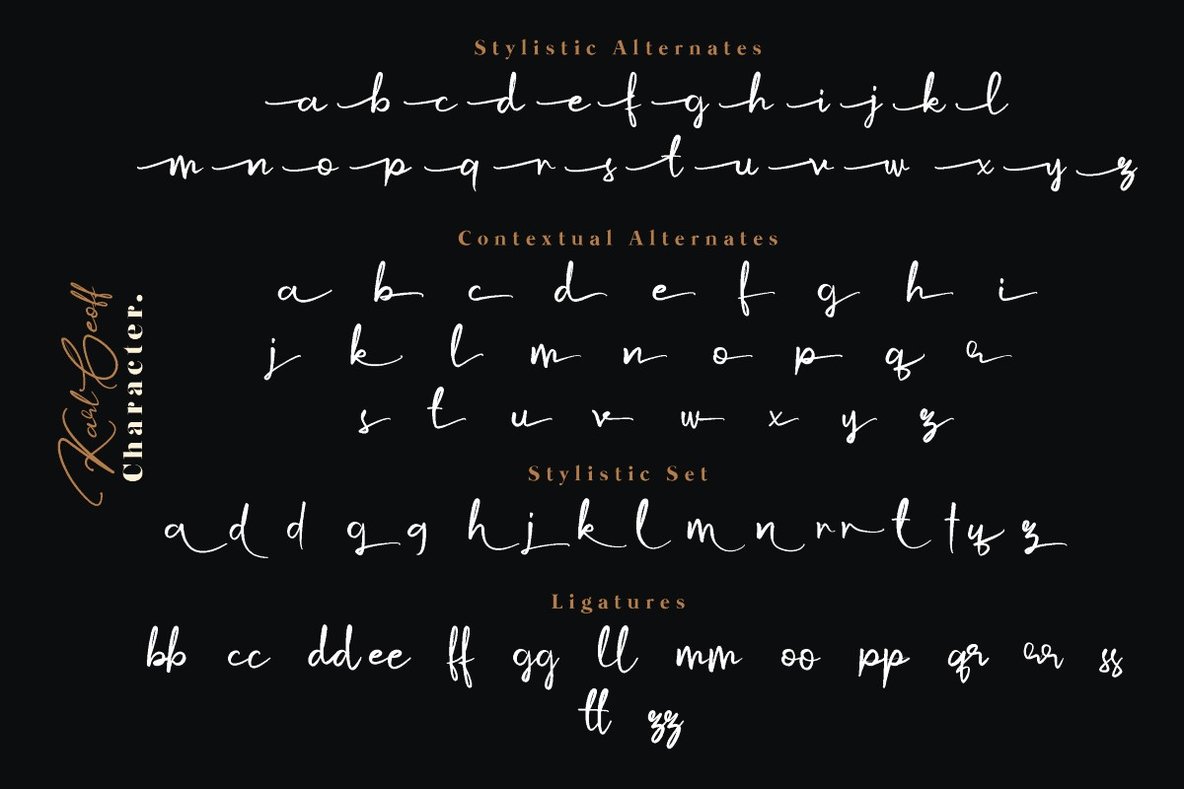 Stylistic Alternates
a b c d e f g h i j k l
m n o p q r s t u v w x y z
Contextual Alternates
a b c d e f g h i
j k l m n o p q r
s t u v w x y z
Karl Geoff
Character.
Stylistic Set
a d d g g h j k l m n r r t t y z
Ligatures
bb cc dd ee ff gg ll mm oo pp qr rr ss
tt zz